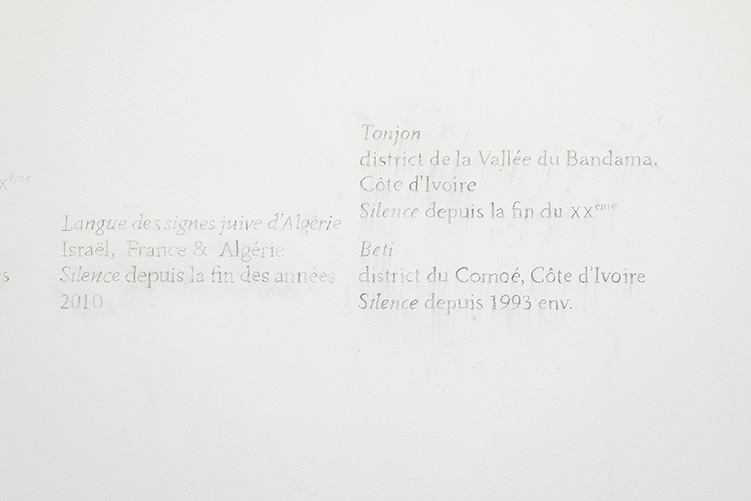 xème
s
Langue des signes juive d'Algérie
Israël, France & Algérie
Silence depuis la fin des années
2010
Tonjon
district de la Vallée du Bandama,
Côte d'Ivoire
Silence depuis la fin du xxème
Beti
district du Comoé, Côte d'Ivoire
Silence depuis 1993 env.